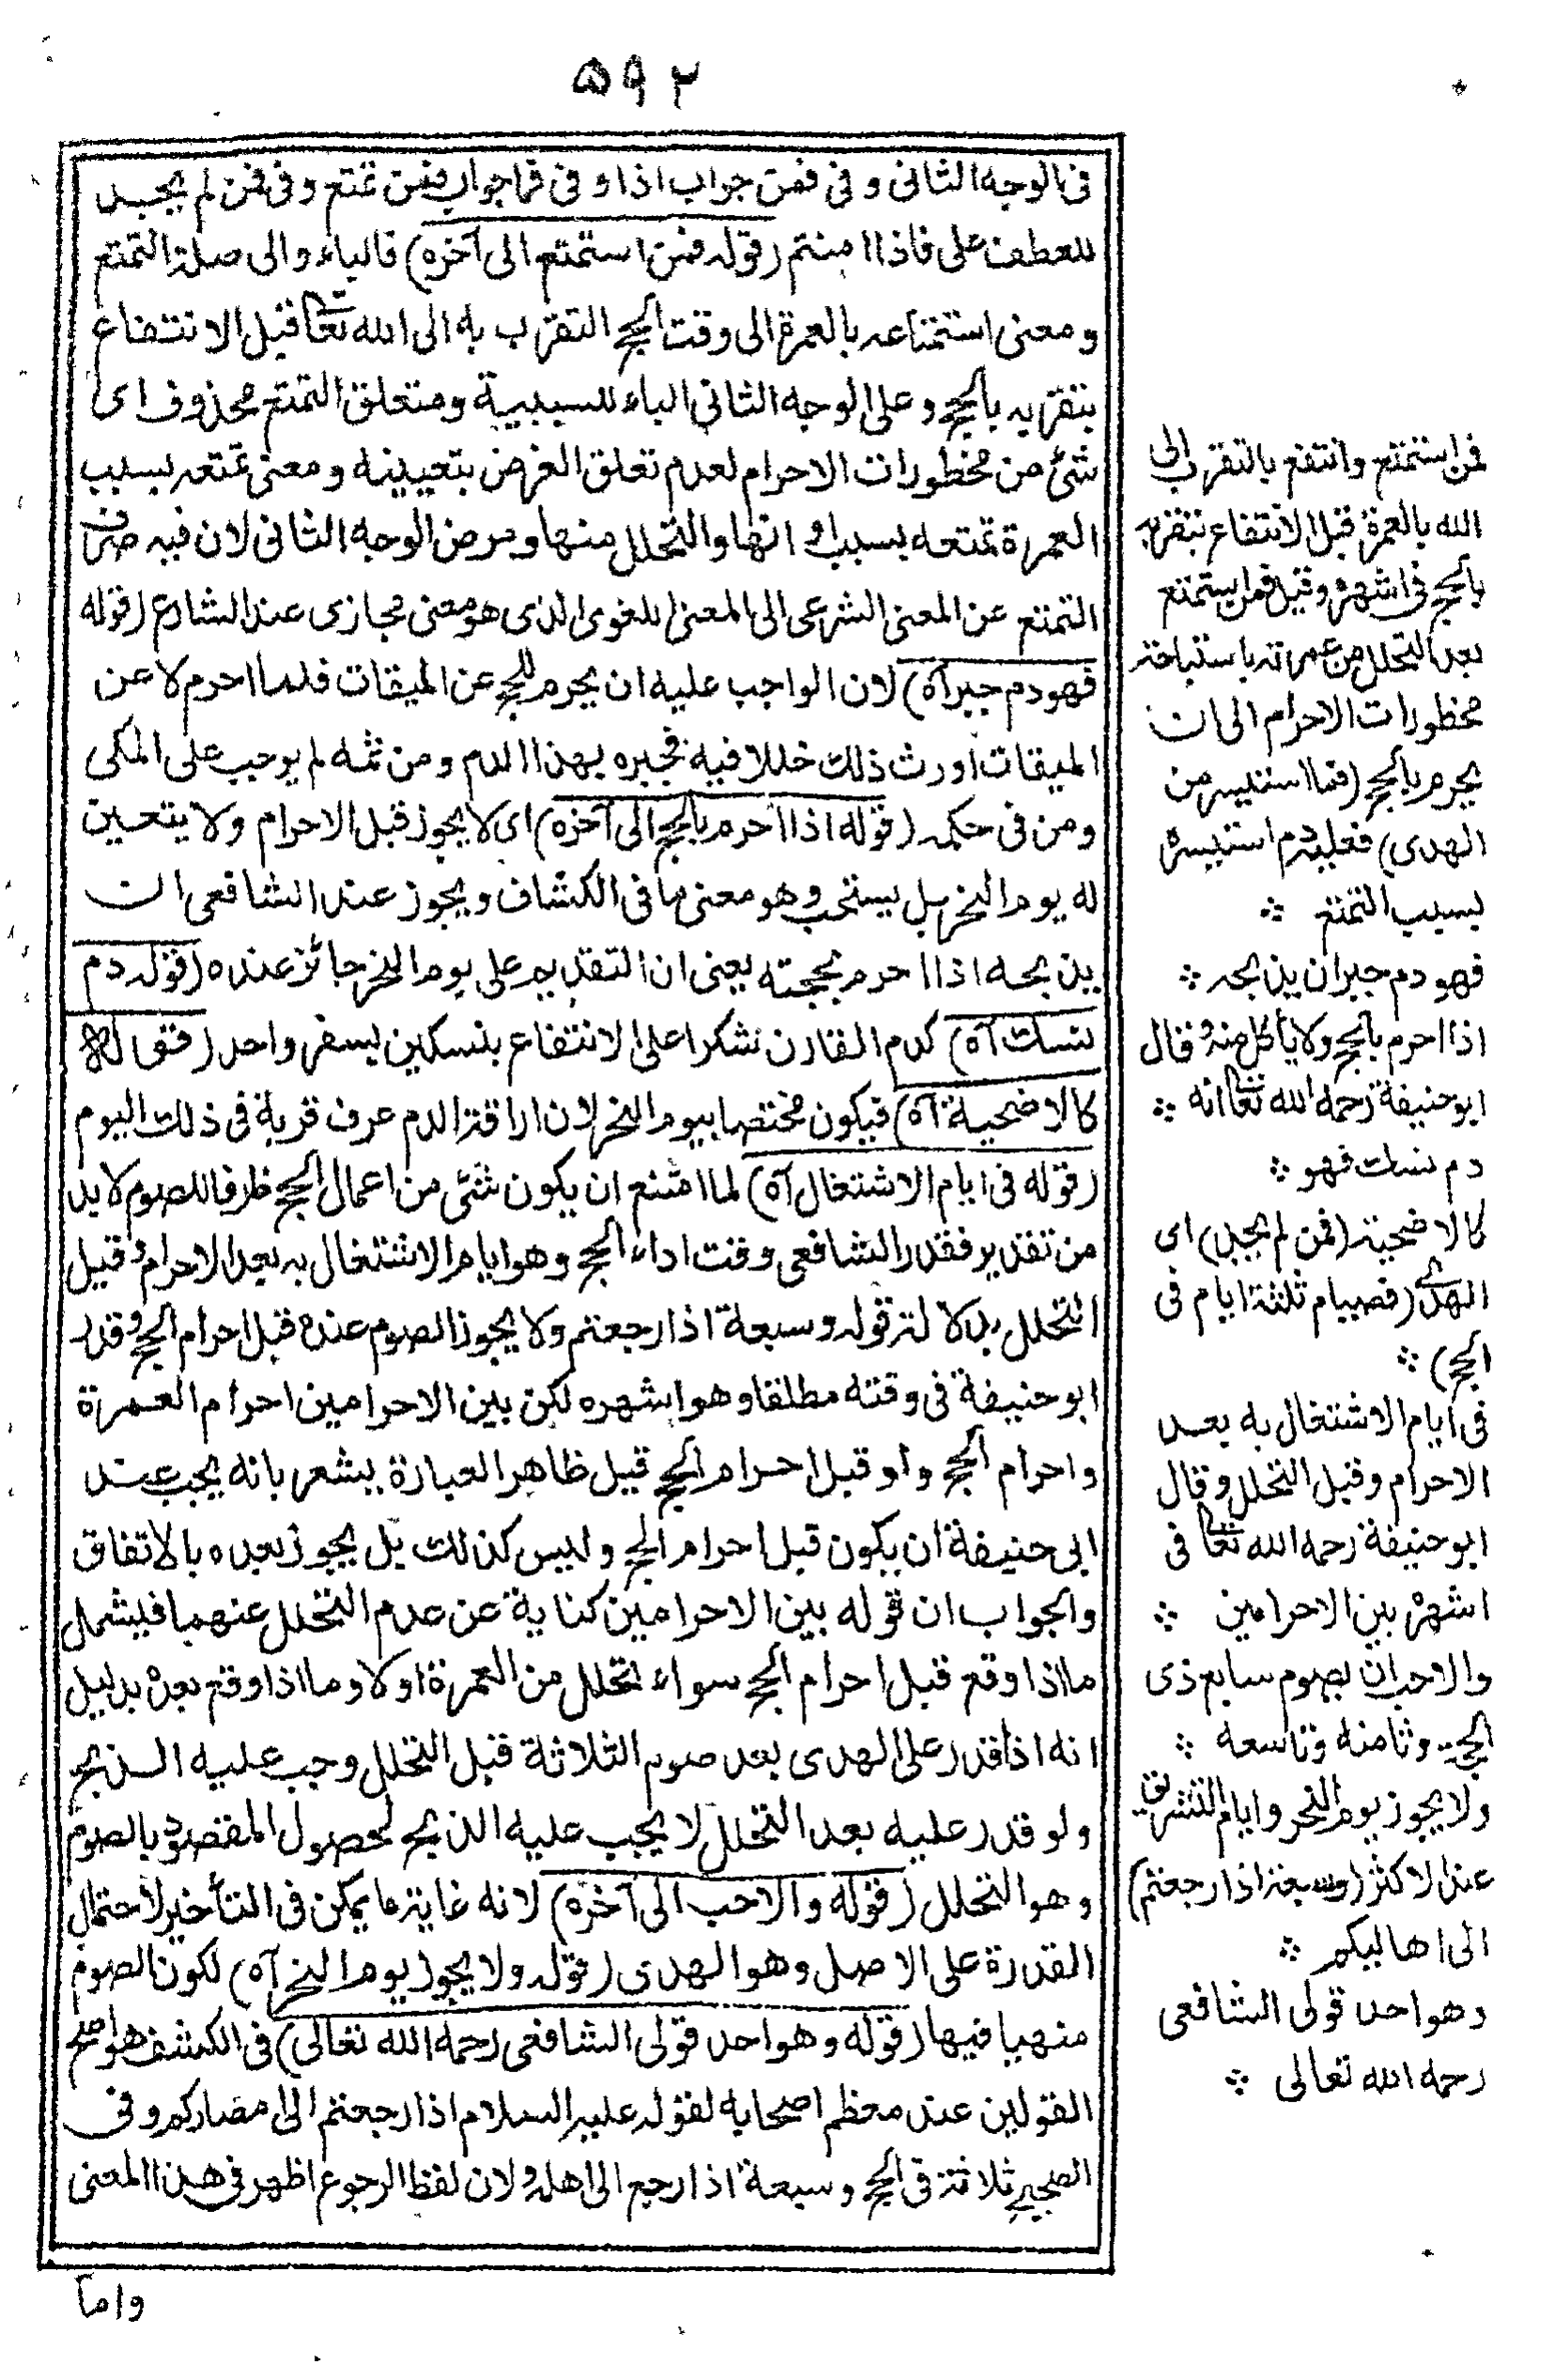 ۵۹۲
فى الوجه الثانى وفى فمن جواب اذا وفى فما جواب فمن تمتع وفى فمن لم يجد
للعطف على فاذا امنتم (قوله فمن استمتع الى آخره) فالباء والى صلة التمتع
ومعنى استمتاعه بالعمرة الى وقت الحج التقرب به الى الله تعالى قبل الانتفاع
بتقربه بالحج وعلى الوجه الثانى الباء للسببية ومتعلق التمتع محذوف اى
شئ من محظورات الاحرام لعدم تعلق الغرض بتعيينه ومعنى تمتعه بسبب
العمرة تمتعه بسبب اوانها والتحلل منها ومرض الوجه الثانى لان فيه صرف
التمتع عن المعنى الشرعى الى المعنى اللغوى الذى هو معنى مجازى عند الشارع (قوله
فهو دم جبر آه) لان الواجب عليه ان يحرم للحج عن الميقات فلما احرم لا عن
الميقات اورث ذلك خللا فيه فجبره بهذا الدم ومن ثمه لم يوجب على المكى
ومن فى حكمه (قوله اذا احرم بالحج الى آخره) اى لا يجوز قبل الاحرام ولا يتعين
له يوم النحر بل يستحب وهو معنى ما فى الكشاف ويجوز عند الشافعى ان
يذبحه اذا احرم بحجته يعنى ان التقديم على يوم النحر جائز عنده (قوله دم
نسك آه) كدم القارن شكرا على الانتفاع بنسكين بسفر واحد (قوله
كالاضحية آه) فيكون مختصا بيوم النحر لان اراقة الدم عرف قربة فى ذلك اليوم
(قوله فى ايام الاشتغال آه) لما امتنع ان يكون شئى من اعمال الحج ظرفا للصوم لا بد
من تقدير فقدر الشافعى وقت اداء الحج وهو ايام الاشتغال به بعد الاحرام وقبل
التحلل بدلالة قوله وسبعة اذا رجعتم ولا يجوز الصوم عنده قبل احرام الحج وقدر
ابو حنيفة فى وقته مطلقا وهو اشهره لكن بين الاحرامين احرام العمرة
واحرام الحج ولو قبل احرام الحج قيل ظاهر العبارة يشعر بانه يجب عند
ابى حنيفة ان يكون قبل احرام الحج وليس كذلك بل يجوز بعده بالاتفاق
والجواب ان قوله بين الاحرامين كناية عن عدم التحلل عنهما فيشمل
ما اذا وقع قبل احرام الحج سواء تحلل من العمرة اولا وما اذا وقع بعده بدليل
انه اذا قدر على الهدى بعد صوم الثلاثة قبل التحلل وجب عليه الذبح
ولو قدر عليه بعد التحلل لا يجب عليه الذبح لحصول المقصود بالصوم
وهو التحلل (قوله والاحب الى آخره) لانه غاية ما يمكن فى التأخير لاحتمال
القدرة على الاصل وهو الهدى (قوله ولا يجوز يوم النحر آه) لكون الصوم
منهيا فيها (قوله وهو احد قولى الشافعى رحمه الله تعالى) فى الكشف هو اصح
القولين عند معظم اصحابه لقوله عليه السلام اذا رجعتم الى امصاركم وفى
الصحيح ثلاثة فى الحج وسبعة اذا رجع الى اهله ولان لفظ الرجوع اظهر فى هذا المعنى
واما
فمن استمتع وانتفع بالتقرب الى
الله بالعمرة قبل الانتفاع بتقربه
بالحج فى اشهره وقيل فمن استمتع
بعد التحلل من عمرته باستباحة
محظورات الاحرام الى ان
يحرم بالحج (فما استيسر من
الهدى) فعليه دم استيسره
بسبب التمتع
فهو دم جبران يذبحه
اذا احرم بالحج ولا يأكل منه وقال
ابو حنيفة رحمه الله تعالى انه
دم نسك فهو
كالاضحية (فمن لم يجد) اى
الهدى (فصيام ثلثة ايام فى
الحج)
فى ايام الاشتغال به بعد
الاحرام وقبل التحلل وقال
ابو حنيفة رحمه الله تعالى فى
اشهره بين الاحرامين
والاحب ان يصوم سابع ذى
الحجة وثامنه وتاسعه
ولا يجوز يوم النحر وايام التشريق
عند الاكثر (وسبعة اذا رجعتم)
الى اهاليكم
وهو احد قولى الشافعى
رحمه الله تعالى